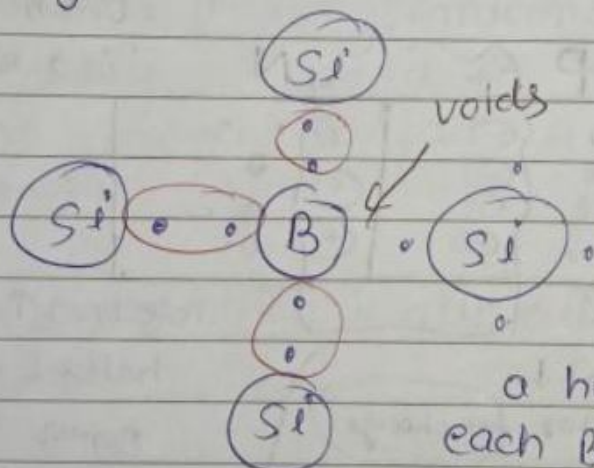 Si
voids
Si B Si
a h
Si
each p